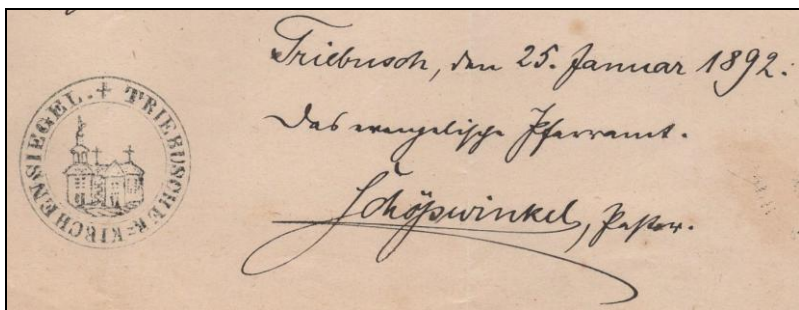 TRIEBUSCHER-KIRCHENSIEGEL. +
Triebusch, den 25. Januar 1892.
Das evangelische Pfarramt.
Schöpwinkel, Pastor.